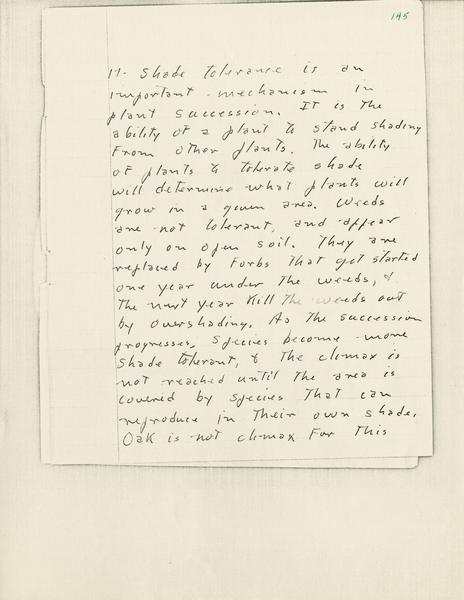 145
17. Shade tolerance is an
important mechanism in
plant succession. It is the
ability of a plant to stand shading
from other plants. The ability
of plants to tolerate shade
will determine what plants will
grow in a given area. Weeds
are not tolerant, and appear
only on open soil. They are
replaced by forbs that get started
one year under the weeds, &
the next year kill the weeds out
by overshading. As the succession
progresses, species become more
shade tolerant, & the climax is
not reached until the area is
covered by species that can
reproduce in their own shade.
Oak is not climax for this